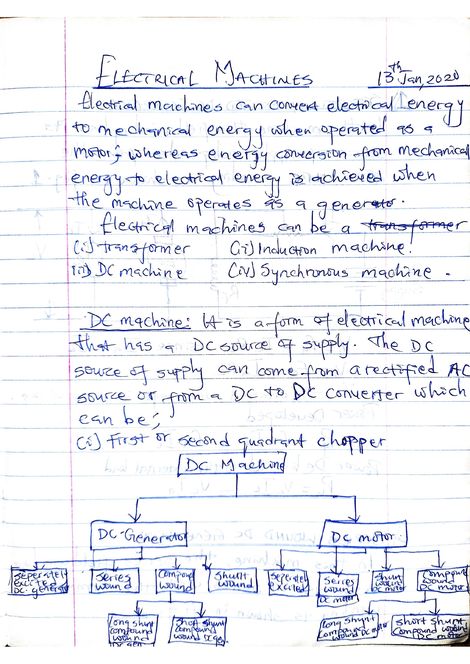 ELECTRICAL MACHINES 13th Jan, 2020
Electrical machines can convert electrical energy
to mechanical energy when operated as a
motor; whereas energy conversion from mechanical
energy to electrical energy is achieved when
the machine operates as a generator.
Electrical machines can be a transformer
(i) transformer (ii) Induction machine.
iii) DC machine (iv) Synchronous machine.
DC machine: It is a form of electrical machine
that has a DC source of supply. The DC
source of supply can come from a rectified AC
source or from a DC to DC converter which
can be;
(i) First or second quadrant chopper
DC Machine
DC-Generator DC motor
Seperately excited DC-generator
Series wound
Compound wound
Shunt wound
Seperately excited
Series wound DC motor
Shunt wound DC motor
Compound wound DC motor
Long shunt compound wound DC gen
Short shunt compound wound DC gen
Long shunt compound wound DC motor
Short shunt compound wound DC motor